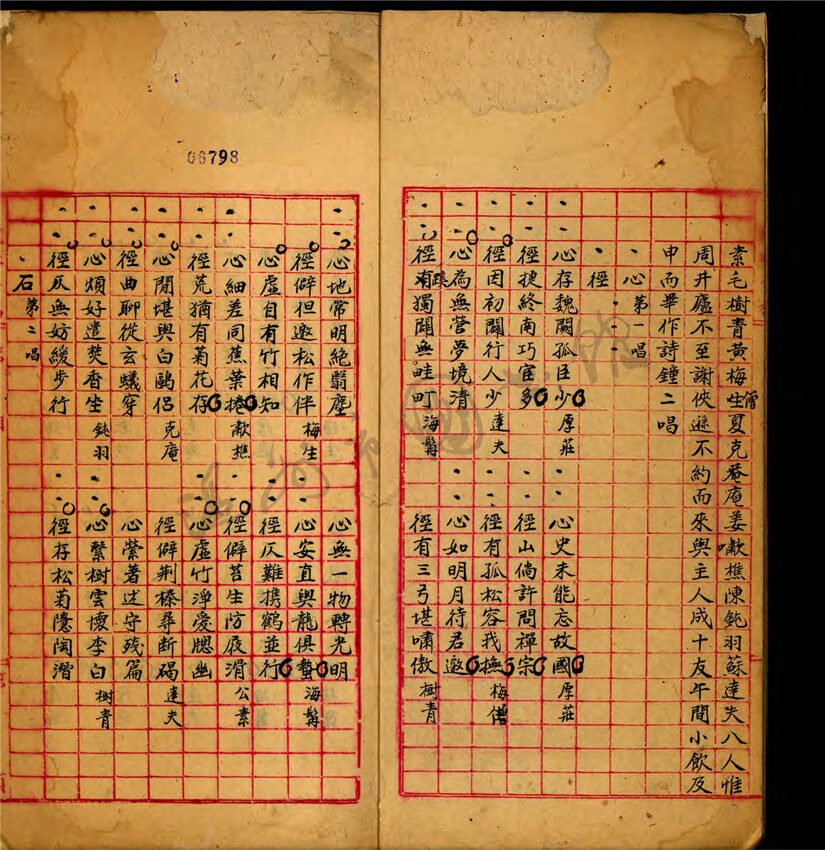 素毛樹青黄梅生僧夏克菴庵姜嗽樵陳鈍羽蘇達夫八人惟
周井廬不至謝俠遜不約而來與主人成十友午間小飲及
申而畢作詩鐘二唱
心徑 第一唱
心存魏闕孤臣少
徑捷終南巧宦多 厚莊
徑因初闢行人少
心為無營夢境清 達夫
徑有蹊獨闢無畦町 海髯
心史未能忘故國
徑山倘許問禪宗 厚莊
徑有孤松容我撫
心如明月待君邀 梅僧
徑有三弓堪嘯傲 樹青
06798
心地常明絕翳塵
徑僻但邀松作伴 梅生
心虛自有竹相知
心細差同蕉葉捲 嗽樵
徑荒猶有菊花存
心閒堪與白鷗侶 克庵
徑曲聊從玄蟻穿
心煩好遣焚香坐 鈍羽
徑仄無妨緩步行
石 第二唱
心無一物轉光明
心安直與龍俱蟄 海髯
徑仄難携鶴並行
徑僻苔生防屐滑 公素
心虛竹淨愛牕幽
徑僻荆榛尋斷碣 達夫
心縈著述守殘篇
心繫樹雲懷李白 樹青
徑存松菊隱陶潛